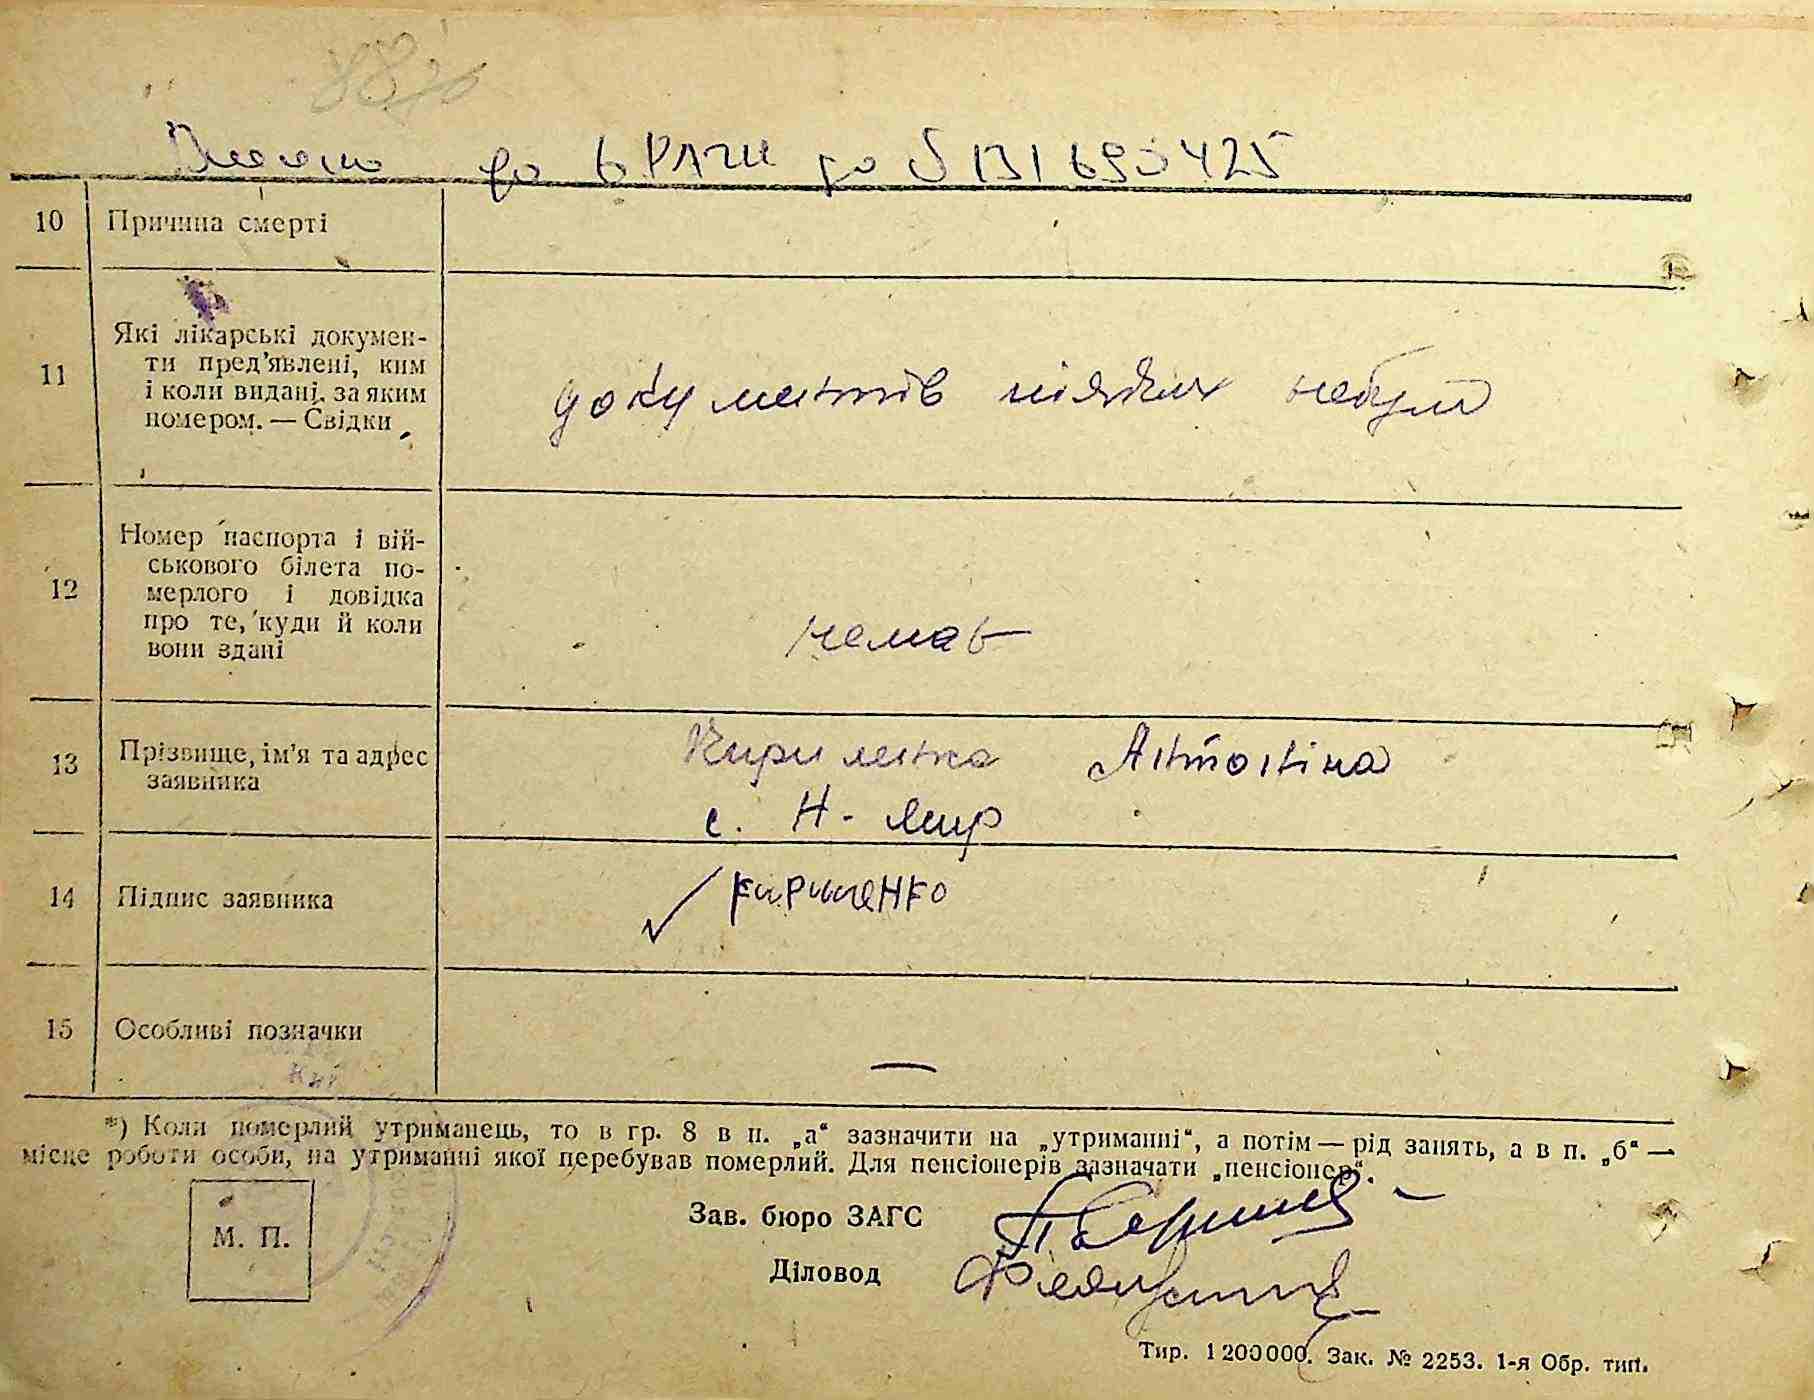 Внесено до ЄРАЦИ до S 131693425
10 Причина смерті
11 Які лікарські докумен-
ти пред'явлені, ким
і коли видані, за яким
номером. — Свідки
документів ніяких небуло
12 Номер паспорта і вій-
ськового білета по-
мерлого і довідка
про те, куди й коли
вони здані
немає
13 Прізвище, ім'я та адрес
заявника
Кириленко Антоніна
с. Н-Мир
14 Підпис заявника
Кириленко
15 Особливі позначки
—
*) Коли померлий утриманець, то в гр. 8 в п. „а“ зазначити на „утриманні“, а потім — рід занять, а в п. „б“ —
місце роботи особи, на утриманні якої перебував померлий. Для пенсіонерів зазначати „пенсіонер“.
М. П.
Зав. бюро ЗАГС
Діловод
Тир. 1200000. Зак. № 2253. 1-я Обр. тип.